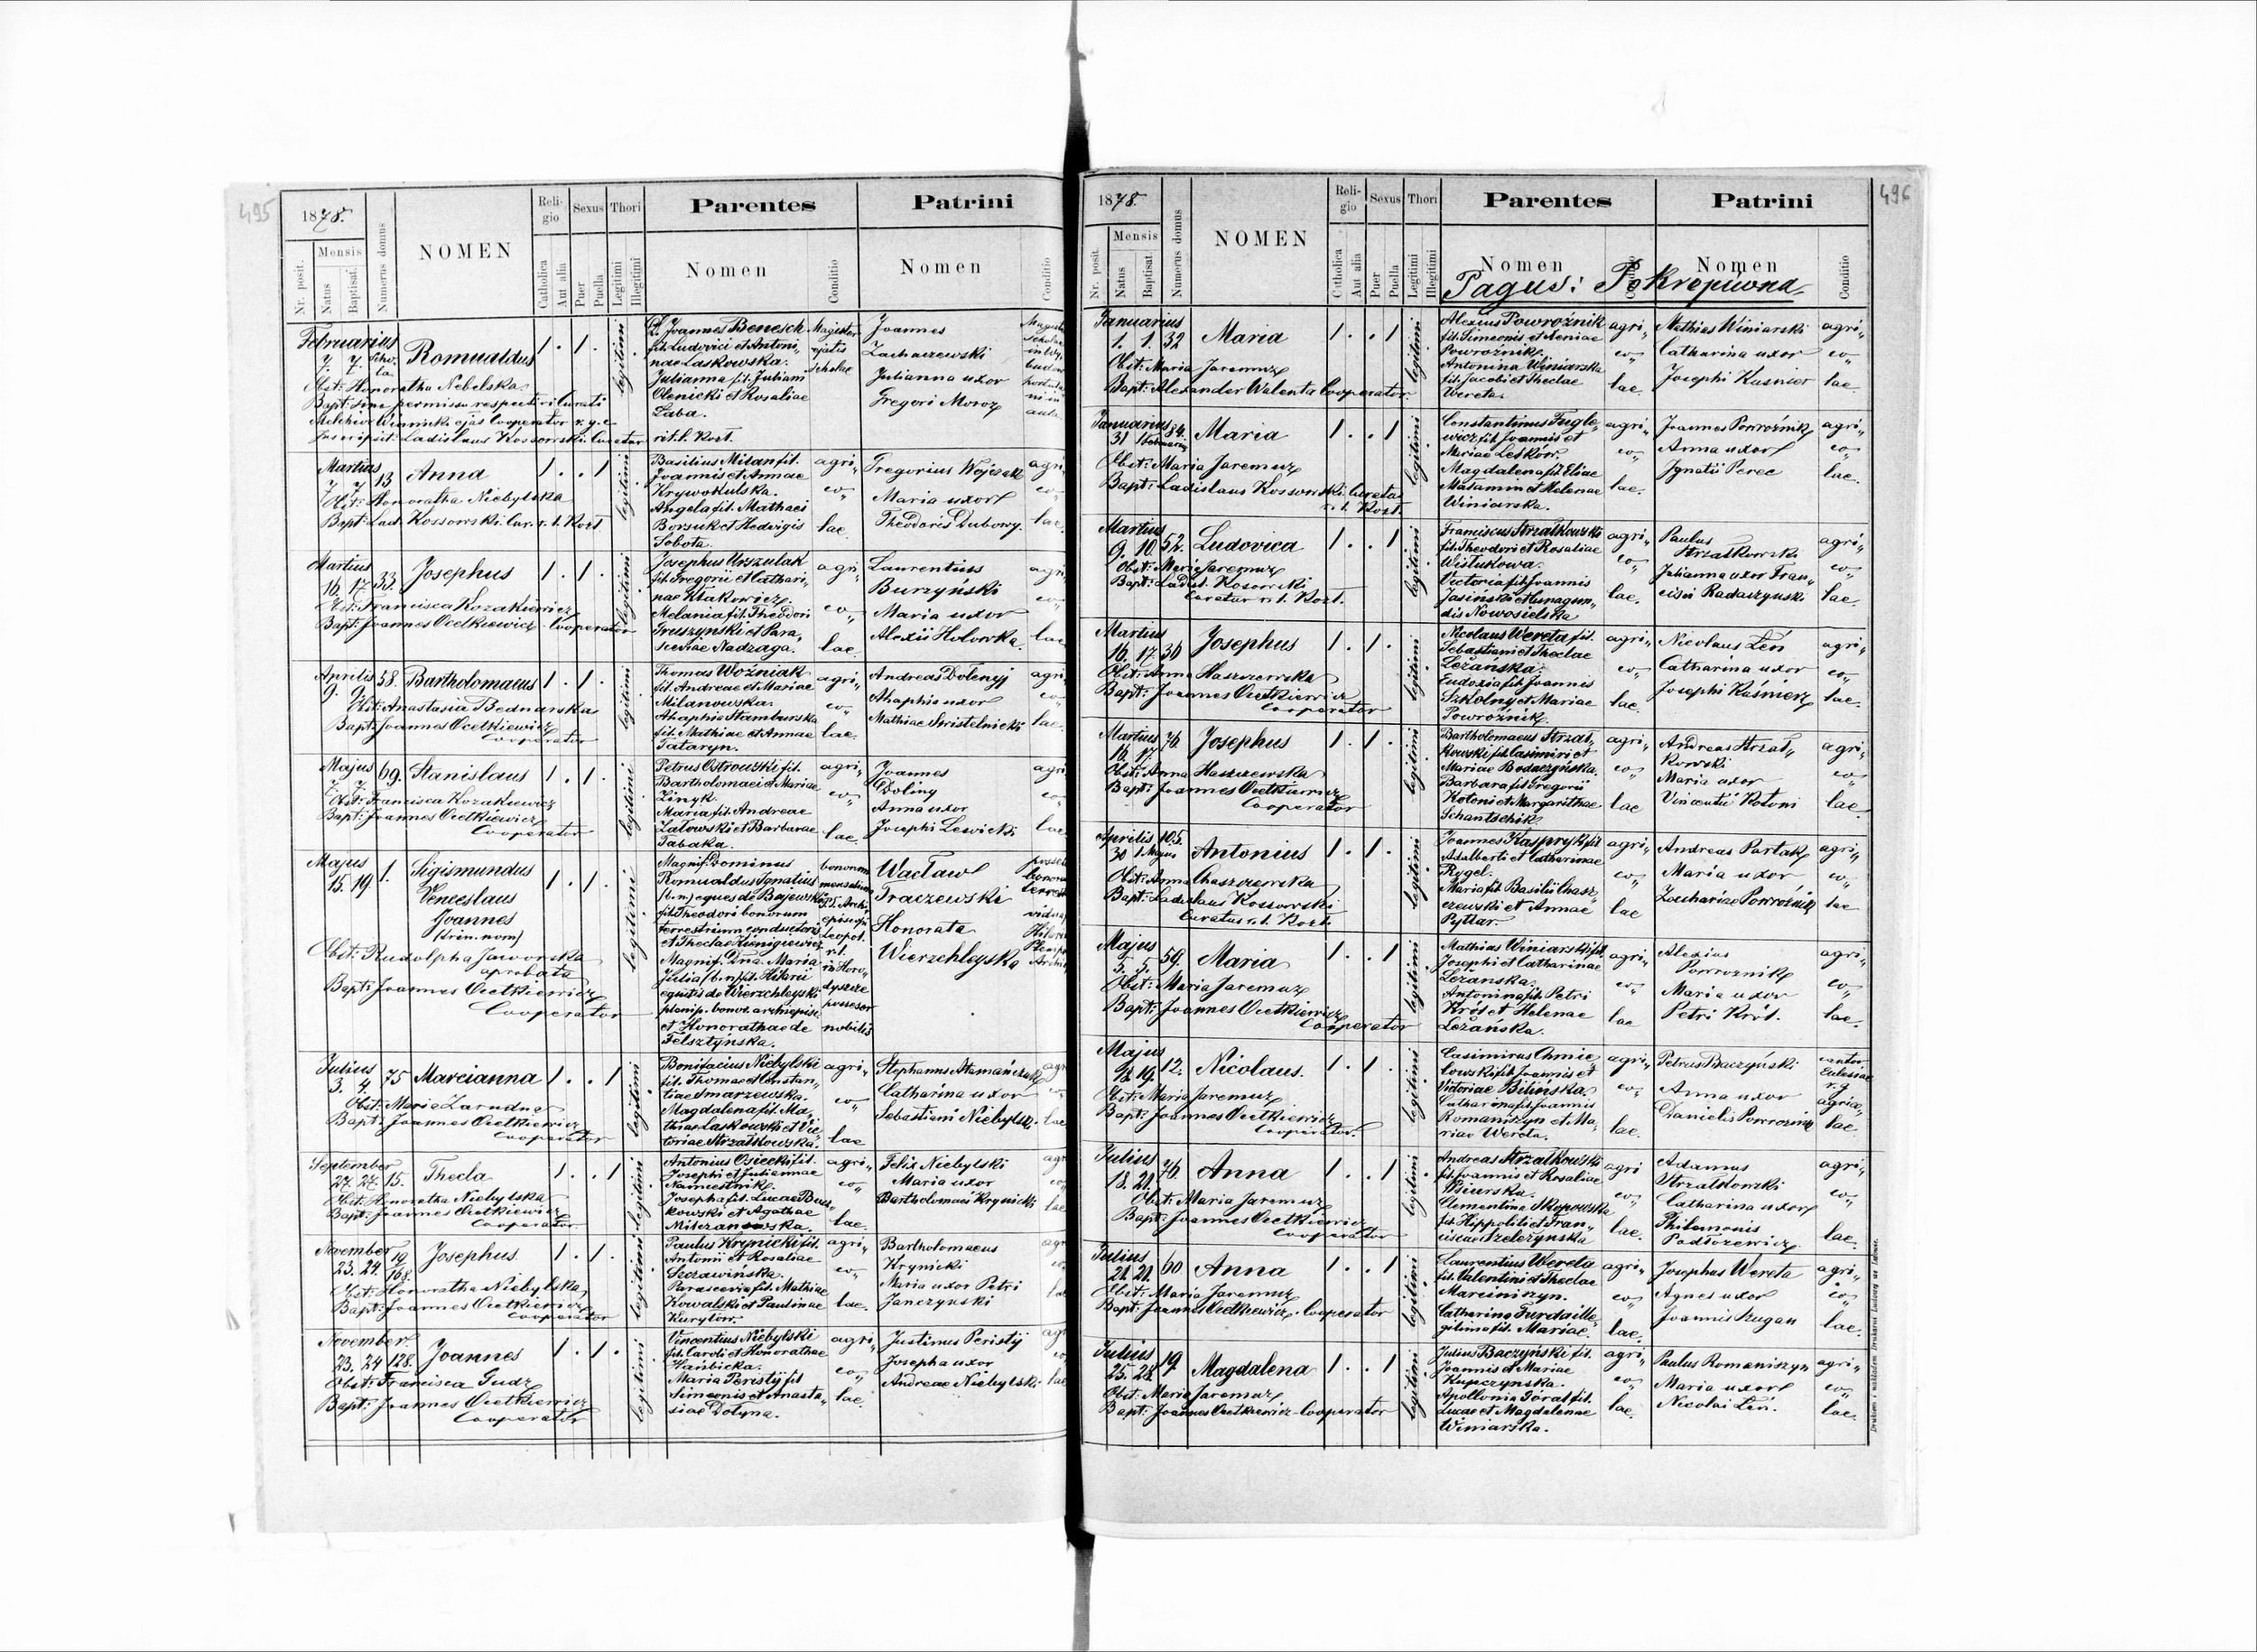 495
1878.
Nr. posit.
Mensis
Natus
Baptisat.
Numerus domus
NOMEN
Religio
Catholica
Aut alia
Sexus
Puer
Puella
Thori
Legitimi
Illegitimi
Parentes
Nomen
Conditio
Patrini
Nomen
Conditio
Februarius
7. 7. Scho-
la
Romualdus
1 . 1 .
legitimi
Joannes Benesch
fil. Ludovici et Antoni„
nae Laskowska.
Julianna fil. Juliani
Olenicki et Rosaliae
Laba.
Magister
scholae
Joannes
Zacharzewski
Julianna uxor
Gregori Moroz
Obst: Honoratha Nebelska
Bapt: permissu respectivi Curati
Melchior Winnicki Cooperator r. g. c.
Inscripsit: Ladislaus Kossowski Curatus rit. l. Kozł.
Martius
7 7 13 Anna
1 . . 1
legitimi
Basilius Milan fil.
Joannis et Annae
Krywokulska.
Angela fil. Mathaei
Borsuk et Hedvigis
Sobota.
agri„
co„
lae.
Gregorius Wojczak
Maria uxor
Theodoris Dubowy.
agri
co„
lae.
Obst: Honoratha Niebylska
Bapt: Lad. Kossowski Cur. r. l. Kozł
Martius
16. 17. 33. Josephus
1 . 1 .
legitimi
Josephus Urszulak
fil. Gregorii et Cathari„
nae Kłakowicz.
Melania fil. Theodori
Gruszynski et Para„
scevae Nadraga.
agri„
co„
lae.
Laurentius
Burzyński
Maria uxor
Alexii Holowka.
agri
co„
lae
Obst: Francisca Kozakiewicz
Bapt: Joannes Ocetkiewicz Cooperator
Aprilis
9. 9. 58. Bartholomaeus
1 . 1 .
legitimi
Thomas Woźniak
fil. Andreae et Mariae
Milanowska.
Ahaphia Stamburska
fil. Mathiae et Annae
Tataryn.
agri„
co„
lae.
Andreas Dolenyj
Ahaphia uxor
Mathiae Stristelnicki
agri
co„
lae.
Obst: Anastasia Bednarska
Bapt: Joannes Ocetkiewicz
Cooperator
Majus
7. 7. 69. Stanislaus
1 . 1 .
legitimi
Petrus Ostrowski fil.
Bartholomaei et Mariae
Zinyk.
Maria fil. Andreae
Zatowski et Barbarae
Tabaka.
agri„
co„
lae.
Joannes
Doliny
Anna uxor
Josephi Lewicki
agri
co„
lae
Obst: Francisca Kozakiewicz
Bapt: Joannes Ocetkiewicz
Cooperator
Majus
15. 19. 1. Sigismundus
Venceslaus
Joannes
(trin. nom)
1 . 1 .
legitimi
Magnif. Dominus
Romualdus Ignatius
(b.n) eques de Bajewski
fil. Theodori bonorum
terrestrium conductoris
et Theclae
Magnif. Dna. Maria
Julia (b.n) fil. Hilarii
equitis de Wierzchleyski
plenip. bonor. archiepisc.
et Honorathae de
Felsztynska.
bonorum
mensalium
Archi„
episcopi
Leopol.
r. l.
in Horo„
dyszcze
possesor
nobilis
Wacław
Traczewski
Honorata
Wierzchleyska
Obst: Rudolpha Jaworska
aprobata
Bapt: Joannes Ocetkiewicz
Cooperator
Julius
3. 4. 75 Marcianna
1 . . 1
legitimi
Bonifacius Niebylski
fil. Thomae et Constan„
tiae Smarzewska.
Magdalena fil. Ma„
thiae Laskowski et Vic„
toriae Strzałkowska.
agri„
co„
lae
Stephanus Atamańczuk
Catharina uxor
Sebastiani Niebylski.
agr
co„
lae
Obst: Maria Zarudna
Bapt: Joannes Ocetkiewicz
Cooperator
September
27. 27. 15. Thecla
1 . . 1
legitimi
Antonius Osiecki fil.
Josephi et Juliannae
Namiestnik.
Josepha fil. Lucae Bucz„
kowski et Agathae
Milczanowska.
agri„
co„
lae.
Felix Niebylski
Maria uxor
Bartholomaei Krynicki
agr
co„
lae
Obst: Honoratha Niebylska
Bapt: Joannes Ocetkiewicz
Cooperator
November
23. 24. 19/168. Josephus
1 . 1 .
legitimi
Paulus Krynicki fil.
Antonii et Rosaliae
Szczawińska.
Parascevia fil. Mathiae
Kowalski et Paulinae
Kuryłow.
agri„
co„
lae.
Bartholomaeus
Krynicki
Maria uxor Petri
Janczynski
Obst: Honoratha Niebylska
Bapt: Joannes Ocetkiewicz
Cooperator
November.
23. 24 128. Joannes
1 . 1 .
legitimi
Vincentius Niebylski
fil. Caroli et Honorathae
Hanbicka.
Maria Peristij fil
Simeonis et Anasta„
siae Dotyna.
agri„
co„
lae.
Justinus Peristij
Josepha uxor
Andreae Niebylski
agr
co„
lae
Obst: Francisca Gudz
Bapt: Joannes Ocetkiewicz
Cooperator
496
1878.
Nr. posit.
Mensis
Natus
Baptisat.
Numerus domus
NOMEN
Religio
Catholica
Aut alia
Sexus
Puer
Puella
Thori
Legitimi
Illegitimi
Parentes
Nomen
Patrini
Nomen
Conditio
Pagus: Pokropiwna
Januarius
1. 1. 32 Maria
1 . . 1
legitimi
Alexius Powroźnik
fil. Simeonis et Xeniae
Powroźnik.
Antonina Winiarska
fil. Jacobi et Theclae
Wereta.
agri„
co„
lae.
Mathias Winiarski
Catharina uxor
Josephi Kusnier
agri„
co„
lae.
Obst: Maria Jaremuz
Bapt: Alexander Walenta Cooperator
Januarius
31 1 Februarius 84. Maria
1 . . 1
legitimi
Constantinus Fugle„
wicz fil. Joannis et
Mariae Leśków.
Magdalena fil. Eliae
Matamin et Helenae
Winiarska.
agri„
co„
lae.
Joannes Powroźnik
Anna uxor
Ignatii Perec
agri„
co„
lae.
Obst: Maria Jaremuz
Bapt: Ladislaus Kossowski Curatus
r. l. Kozł.
Martius
9. 10. 52. Ludovica
1 . . 1
legitimi
Franciscus Strzałkowski
fil. Theodori et Rosaliae
Wistukowa.
Victoria fil. Joannis
Jasiński et Cunegun„
dis Nowosielska
agri„
co„
lae.
Paulus
Strzałkowski
Julianna uxor Fran„
cisci Radaczynski
agri„
co„
lae.
Obst: Maria Jaremuz
Bapt: Ladisl. Kossowski
Curatus r. l. Kozł.
Martius
16. 17 36 Josephus
1 . 1 .
legitimi
Nicolaus Wereta fil.
Sebastiani et Theclae
Leżańska.
Eudoxia fil. Joannis
Szkolny et Mariae
Powroźnik.
agri„
co„
lae.
Nicolaus Len
Catharina uxor
Josephi Kuśnierz
agri„
co„
lae.
Obst: Anna Haszczewska
Bapt: Joannes Ocetkiewicz
Cooperator
Martius
16. 17 76 Josephus
1 . 1 .
legitimi
Bartholomaeus Strzał„
kowski fil. Casimiri et
Mariae Bodaczyńska.
Barbara fil. Gregorii
Kotoni et Margarithae
Schantschik.
agri„
co„
lae
Andreas Strzał„
kowski
Maria uxor
Vincentii Kotoni
agri„
co„
lae.
Obst: Anna Haszczewska
Bapt: Joannes Ocetkiewicz
Cooperator
Aprilis
30 1. Majus 105. Antonius
1 . 1 .
legitimi
Joannes Kaspryk fil
Adalberti et Catharinae
Rygel.
Maria fil. Basilii Chasz„
czewski et Annae
Pytlar.
agri„
co„
lae
Andreas Partak
Maria uxor
Zachariae Powroźnik
agri„
co„
lae
Obst: Anna Chaszczewska
Bapt: Ladislaus Kossowski
Curatus r. l. Kozł.
Majus
5. 5. 59. Maria
1 . . 1
legitimi
Mathias Winiarski fil.
Josephi et Catharinae
Leżanska.
Antonina fil. Petri
Król et Helenae
Leżańska.
agri„
co„
lae
Alexius
Powroznik
Maria uxor
Petri Król.
agri„
co„
lae.
Obst: Maria Jaremuz
Bapt: Joannes Ocetkiewicz
Cooperator
Majus
18. 19. 12. Nicolaus.
1 . 1 .
legitimi
Casimirus Chmie„
lowski fil. Joannis et
Victoriae Bilińska.
Catharina fil. Joannis
Romaniszyn et Ma„
riae Wereta.
agri„
co„
lae.
Petrus Baczyński
Anna uxor
Danielis Powroznik
cantor
Eclesiae
r. g
agrico„
lae.
Obst: Maria Jaremuz
Bapt: Joannes Ocetkiewicz
Cooperator.
Julius
18. 21. 76. Anna
1 . . 1
legitimi
Andreas Strzałkowski
fil. Joannis et Rosaliae
Clementina Skopowska
fil. Hippoliti et Fran„
ciscae Szeleżynska
agri
co„
lae.
Adamus
Strzałkowski
Catharina uxor
Philemonis
Podłozewicz
agri„
co„
lae.
Obst: Maria Jaremuz
Bapt: Joannes Ocetkiewicz
Cooperator
Julius
21. 21. 60 Anna
1 . . 1
legitimi
Laurentius Wereta
fil. Valentini et Theclae
Marciniszyn.
Catharina Furda ille„
gitima fil. Mariae.
agri„
co„
lae.
Josephus Wereta
Agnes uxor
Joannis Szugan
agri„
co„
lae.
Obst: Maria Jaremuz
Bapt: Joannes Ocetkiewicz - Cooperator
Julius
25. 28. 19. Magdalena
1 . . 1
legitimi
Julius Baczyński fil.
Joannis et Mariae
Kupczynska.
Apollonia Góral fil.
Lucae et Magdalenae
Winiarska.
agri„
co„
lae.
Paulus Romaniszyn
Maria uxor
Nicolai Len.
agri„
co„
lae.
Obst: Maria Jaremuz
Bapt: Joannes Ocetkiewicz - Cooperator